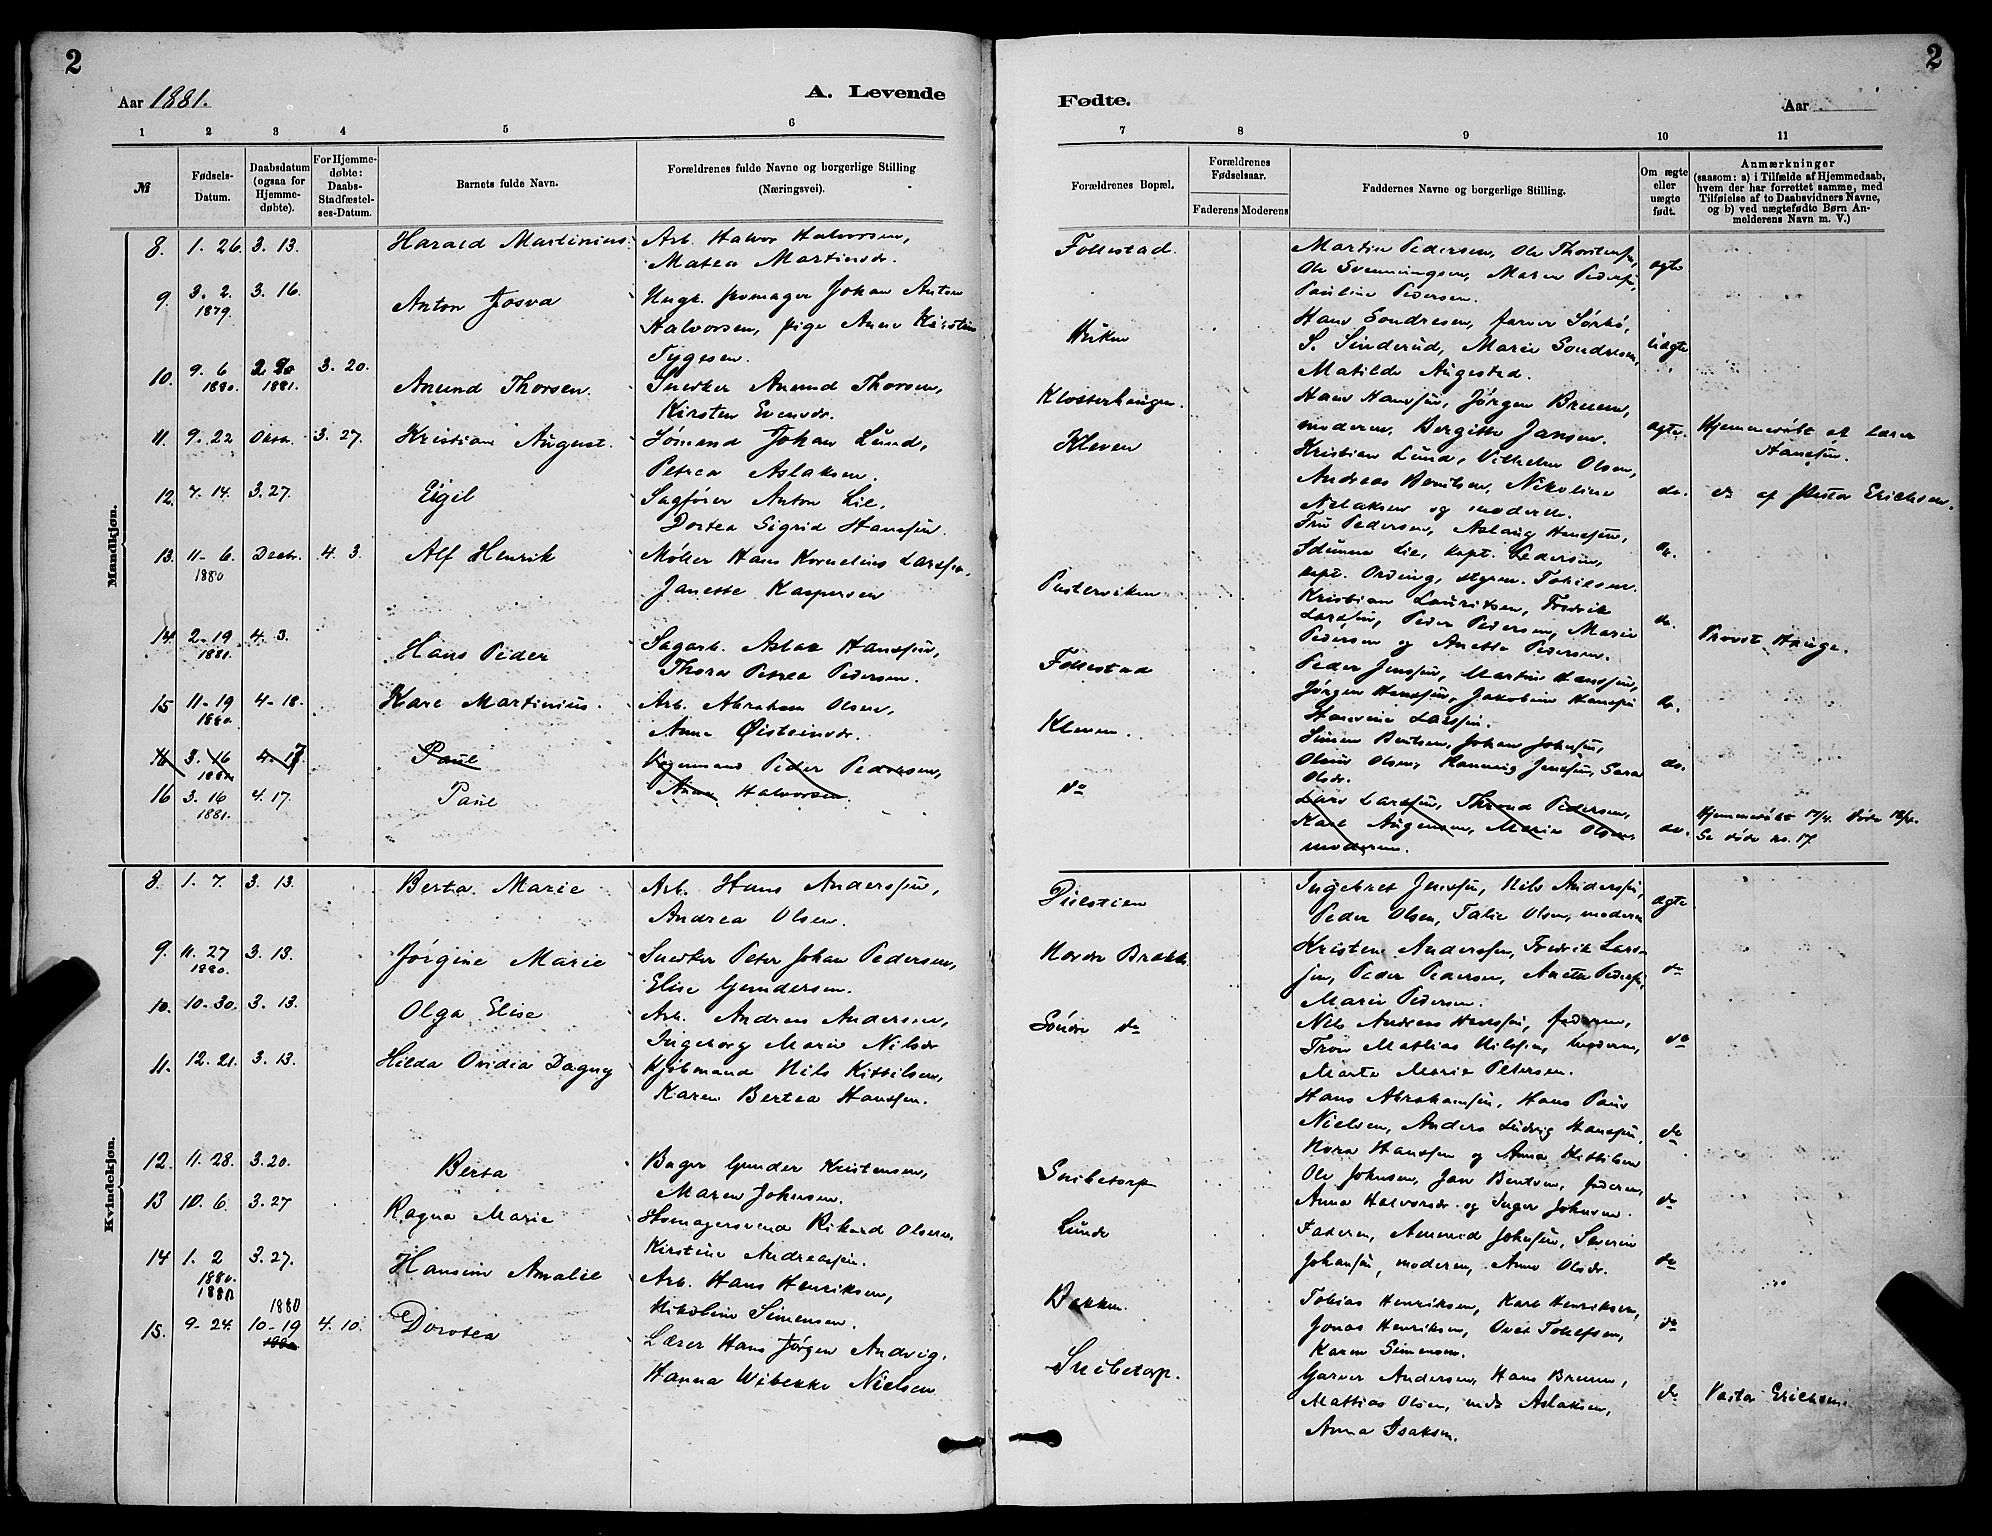 2
Aar 1881.
A. Levende
1 2 3 4 5 6
№
Fødsels-
Datum.
Daabsdatum
(ogsaa for
Hjemme-
døbte).
For Hjemme-
døbte:
Daabs-
Stadfæstel-
ses-Datum.
Barnets fulde Navn.
Forældrenes fulde Navne og borgerlige Stilling
(Næringsvei).
Mandkjøn.
8. 1. 26. 3. 13. Harald Martinius. Arb. Halvor Halvorsen,
Matea Martinsdr.
9. 3. 2. 3. 16. Anton Josva Ungk. Johan Anton
1879.
Halvorsen, pige Anne Kirstine
Tygesen.
10. 9. 6 2 20 3. 20. Anund Thorsen. Snedker Anund Thorsen,
1880. 1881.
Kirsten Evensdr.
11. 9. 22 Oktr. 3. 27. Kristian August. Sømand Johan Lund,
Petrea Aslaksen.
12. 7. 14. 3. 27. Eigil Sagfører Anton Lie,
Dortea Sigrid Hanssen.
13. 11. 6. Decbr. 4. 3. Alf Henrik Møller Hans Kornelius Larssen,
1880
Janette Kaspersen
14. 2-19 4. 3. Hans Peder Sagarb. Aslak Hanssen,
1881.
Thora Petrea Pedersen.
15 11-19 4-18. Karl Martinius. Arb. Abraham Olsen,
1880.
Anne Øisteinsdr.
16 3. 16 4. 17. Paul Peder Pedersen,
1881
Anne Halvorsen.
16 3. 16 4. 17. Paul
1881.
Kvindekjøn.
8. 1. 7. 3. 13. Berta Marie Arb. Hans Anderssen,
Andrea Olsen.
9. 11. 27 3. 13. Jørgine Marie Snedker Peter Johan Pedersen,
1880.
Elise Gundersen.
10. 10-30. 3. 13. Olga Elise Arb. Andreas Andersen,
Ingeborg Marie Nilsdr
11. 12. 21. 3. 13. Hilda Ovidia Dagny Kjøbmand Nils Kittilsen,
Karen Bertea Hanssen.
12. 11. 28. 3. 20. Berta Bager Gunder Kristensen,
Maren Johnsen.
13 10. 6. 3. 27 Ragna Marie Skomagersvend Rikard Olsen,
Kirstine Andreassen.
14 1. 2 3. 27. Hansine Amalie Arb. Hans Henriksen,
1880.
Nikoline Simensen.
1880 1880
15. 9-24. 10-19 4. 10. Dorotea Lærer Hans Jørgen Andvig.
1880
Hanna Wibekke Nielsen
2
Fødte.
Aar
7 8 9 10 11
Forældrenes Bopæl.
Forældrenes
Fødselsaar.
Faderens Moderens
Faddernes Navne og borgerlige Stilling.
Om ægte
eller
uægte
født.
Anmærkninger
(saasom: a) i Tilfælde af Hjemmedaab,
hvem der har forrettet samme, med
Tilføielse af to Daabsvidners Navne,
og b) ved uægtefødte Børn An-
melderens Navn m. V.)
Follestad. Martin Pedersen, Ole Thorstensen, ægte
Ole Svenningsen, Maren Pedersen,
Pauline Pedersen.
Hans Sondresen,
S. Sinderud, Marie Sondresen, uægte
Matilde Augestad.
Klosterhaugen. Hans Hanssen, Jørgen Bruun,
moderen, Bergitte Jansen. ægte. Hjemmedøbt af Lærer
Hanssen.
Kleven Kristian Lund, Vilhelm Olsen,
Andreas Bentsen, Nikoline do. do af Pastor Erichsen.
Aslaksen og moderen.
Fru Pedersen, Aslaug Hanssen,
Idunna Lie, kapt. Pedersen, do.
kapt. Ording, styrm. Tobiesen.
Pusterviken Kristian Lauritsen, Fredrik
Larssen, Peder Pedersen, Marie do. Provst Hauge.
Pedersen og Anette Pedersen.
Follestad Peder Jenssen, Martin Hanssen,
Jørgen Hanssen, Jakobine Hanssen do.
Larssen.
Kleven. Simen Bentsen, Johan Johnsen,
Olaus Olsen, Hannvig Jenssen, Sara do.
Olsdr.
do Lars Larssen, Thrond Pedersen,
Karl Augensen, Maria Olsen, do. Hjemmedøbt 17/4. død 18/4.
moderen. Se døde no. 17
Duestien Ingebret Jenssen, Nils Anderssen, ægte
Peder Olsen, Talie Olsen, moderen
Nordre Brække Kristen Anderssen, Fredrik Lars-
sen, Peder Pedersen, Anette Pederssen, do
Marie Pedersen.
Søndre do Nils Andreas Hanssen, faderen,
Tron Mathias Nilssen, moderen, do
Marte Marie Petersen.
Hans Abrahamsen, Hans Paus
Nielsen, Anders Ludvig Hanssen, do
Nora Hanssen og Anna Kittilsen
Snibetorp Ole Johnsen, Jan Bentsen, faderen,
Anne Halvorsdr. og Inger Johnsen. do
Lunde Faderen, Anund Johnsen, Severin
Johansen, moderen, Anne Olsdr. do
Bakken. Tobias Henriksen, Karl Henriksen,
Jonas Henriksen, Tollefsen, do
Karen Simensen.
Snibetorp. Garver Andersen, Hans Bruun,
Mattias Olsen, Aslaksen, do Pastor Erichsen.
Anna Isaksen.